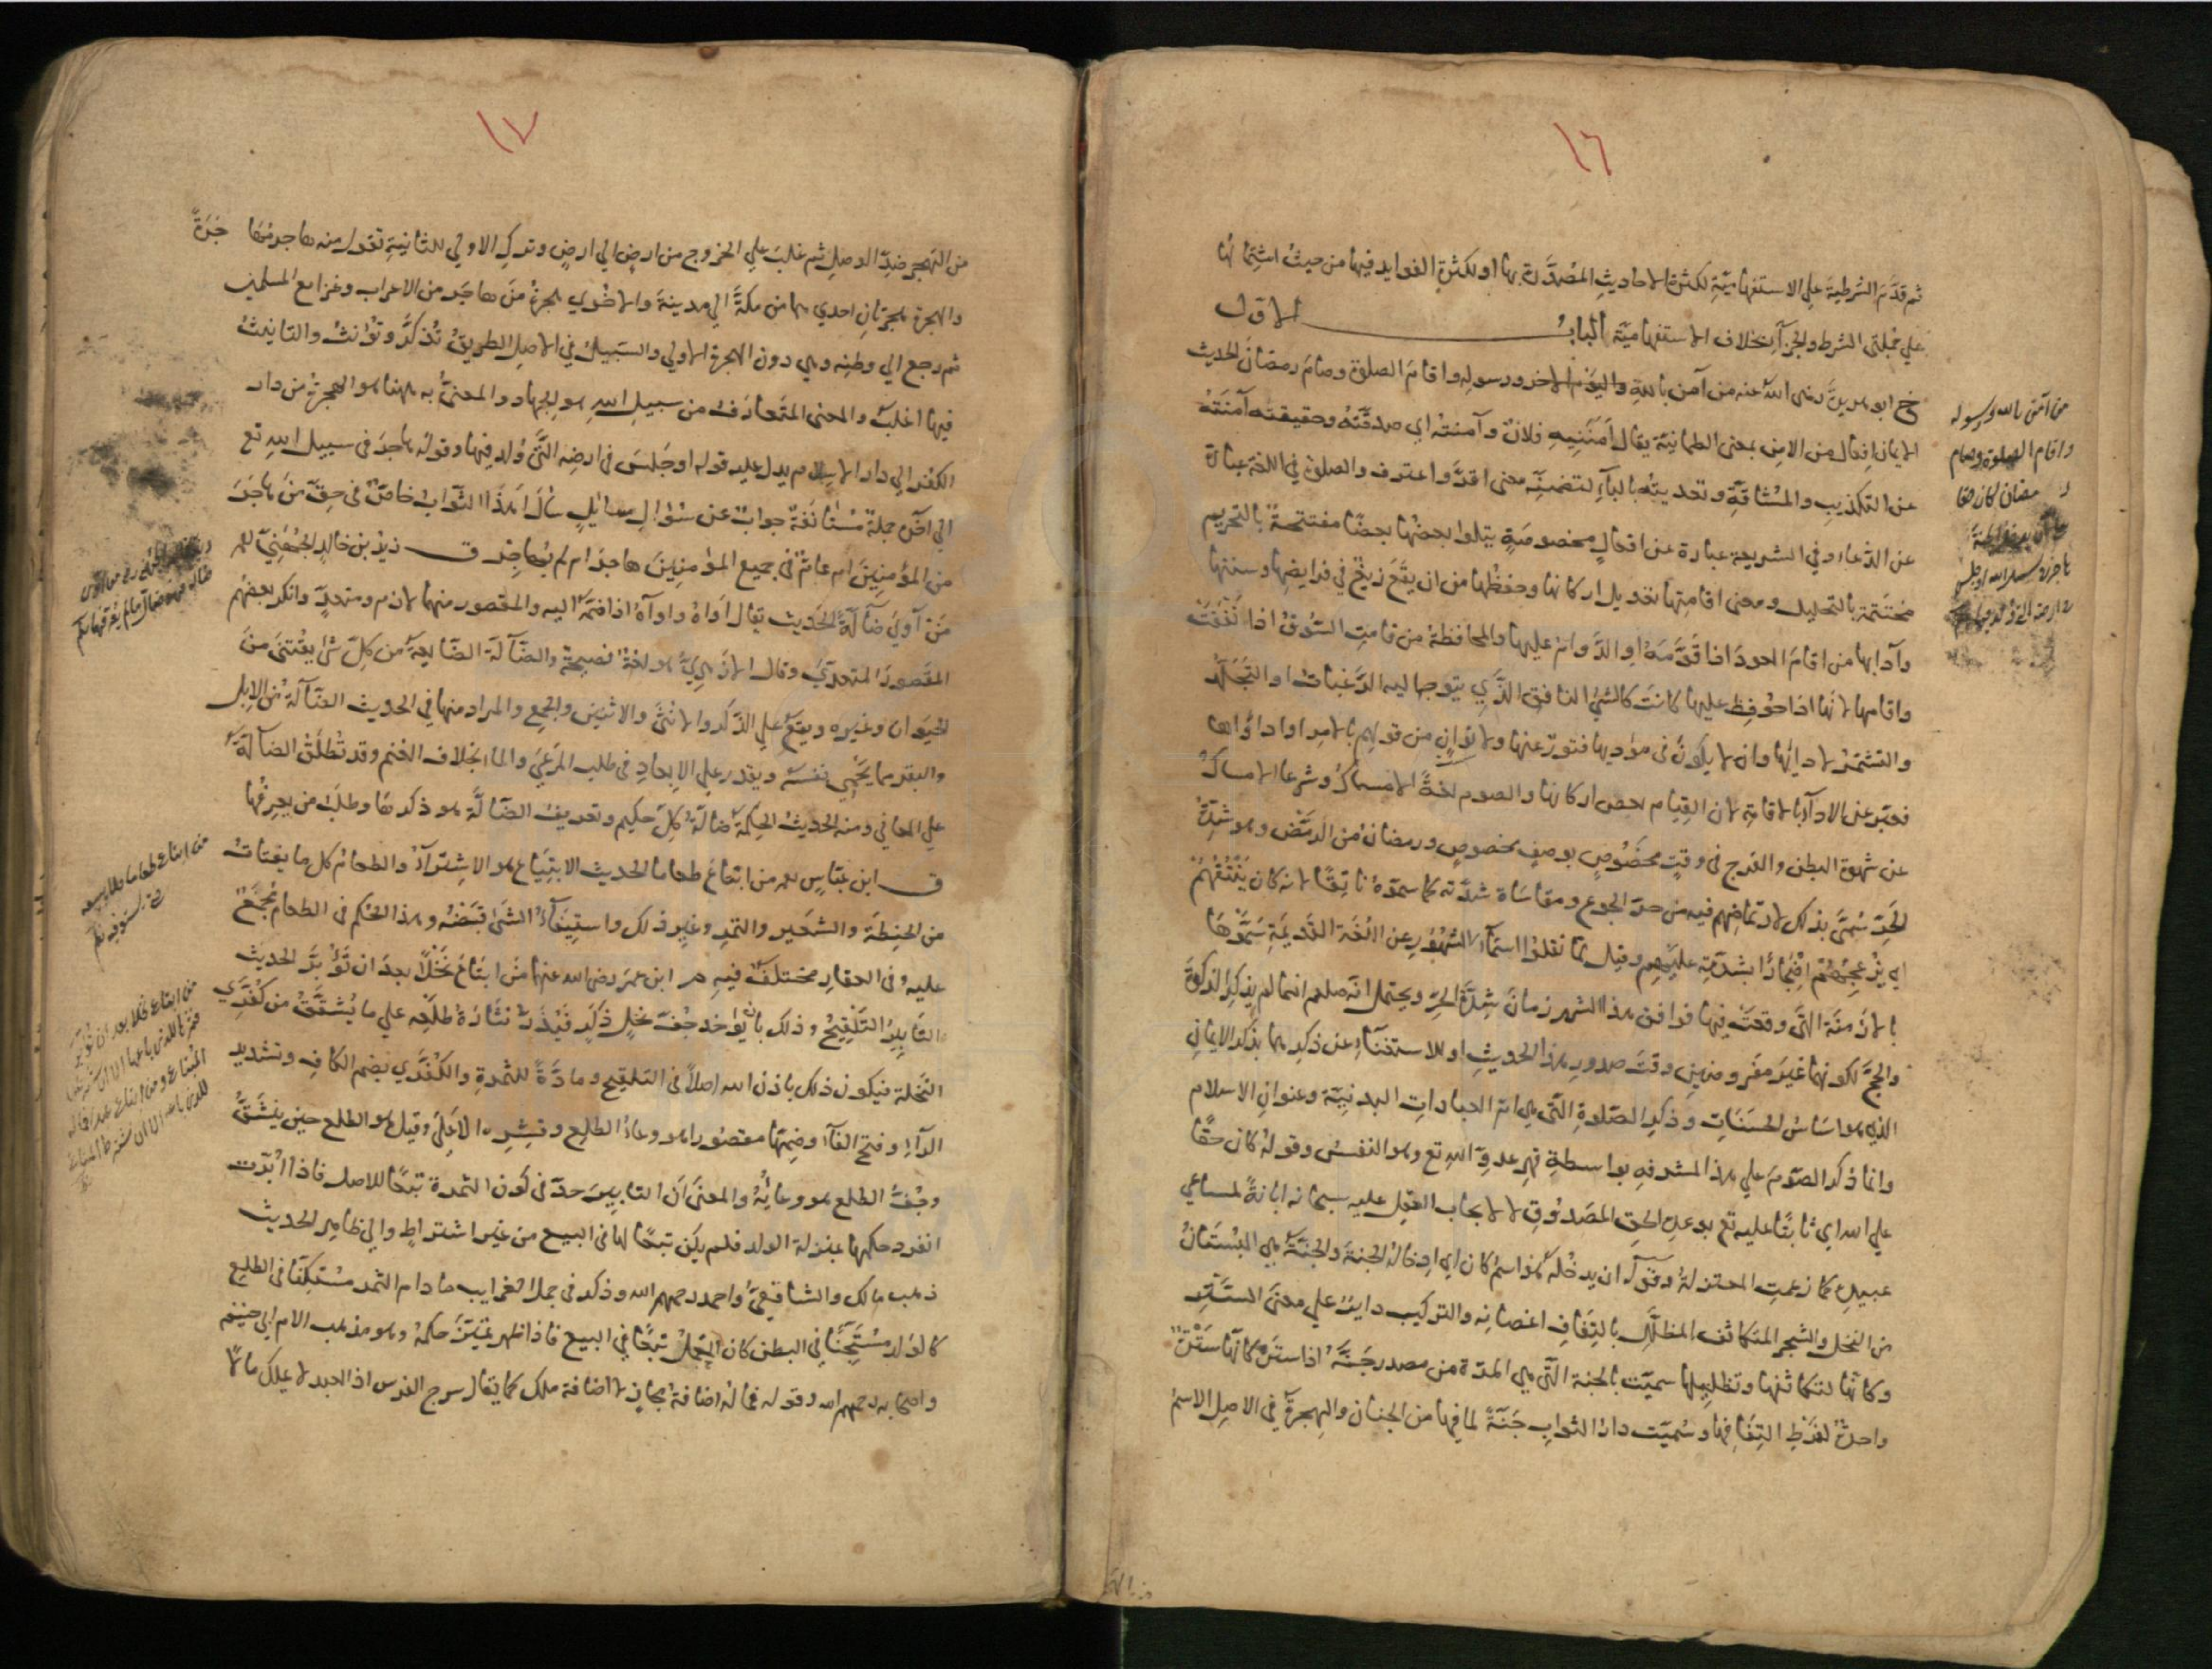 ١٦
ثم قدم الشرطية على الاستفهامية لكثرة الاحاديث المصدرة بها او لكثرة الفوايد فيها من حيث اشتمالها
على جملتى الشرط والجزآء بخلاف الاستفهامية الباب الاول
خ ابو هريرة رضى الله عنه من آمن بالله واليوم الاخر ورسوله واقام الصلوة وصام رمضان الحديث
الايمان افعال من الامن بمعنى الطمانية يقال امننيه فلان وآمنته اى صدقته وحقيقته آمنته
عن التكذيب والمشاقة وتعديته بالبآء لتضمينه معنى اقر واعترف والصلوة فى اللغة عبارة
عن الدعاء وفى الشريعة عبارة عن افعال مخصوصة يتلوا بعضها بعضا مفتتحة بالتحريم
مختتمة بالتحليل ومعنى اقامتها تعديل اركانها وحفظها من ان يقع زيغ فى فرايضها وسننها
وآدابها من اقام العود اذا قومه او الدوام عليها والمحافظة من قامت السوق اذا نفقت
واقامها لانها اذا حوفظ عليها كانت كالشئ النافق الذى يتوجه اليه الرغبات او التجلد
والتشمر لادائها وان لا يكون فى مؤديها فتور عنها ولا توان من قولهم قام بالامر او اداؤها
فعبر عن الادآء بالاقامة لان القيام بعض اركانها والصوم لغة الامساك وشرعا الامساك
عن شهوة البطن والفرج فى وقت مخصوص بوصف مخصوص ورمضان من الرمض وهو شدة
الحر سمى بذلك لارتماضهم فيه من حر الجوع ومقاساة شدته كما سموه ناتقا لانه كان ينتقهم
اى يزعجهم اضجارا بشدته عليهم وقيل لما نقلوا اسمآء الشهور عن اللغة القديمة سموها
بالازمنة التى وقعت فيها فوافق هذا الشهر زمان شدة الحر ويحتمل انه صلعم انما لم يذكر الزكوة
والحج لكونهما غير مفروضين وقت صدور هذا الحديث او للاستغناء عن ذكرهما بذكر الايمان
الذى هو اساس الحسنات وذكر الصلوة التى هى ام العبادات البدنية وعنوان الاسلام
وانما ذكر الصوم على هذا المشرفه بواسطة قهر عدو الله تع وهو النفس وقوله كان حقا
على الله اى ثابتا عليه تع بوعده الحق المصدوق لا لايجاب العقل عليه سبحانه ابانة لمساعى
عبيده كما زعمت المعتزلة وقوله ان يدخله هو اسم كان اى ادخاله الجنة والجنة هى البستان
من النخل والشجر المتكاثف المظلل بالتفاف اغصانه والتركيب داير على معنى الستر
وكانها لتكاثفها وتظليلها سميت بالجنة التى هى المرة من مصدر جنه اذا ستره كانها سترة
واحدة لفرط التفافها وسميت دار الثواب جنة لما فيها من الجنان والهجرة فى الاصل الاسم
من آمن بالله ورسوله
واقام الصلوة وصام
رمضان كان حقا
١٧
من الهجر ضد الوصل ثم غلب على الخروج من ارض الى ارض وترك الاولى للثانية تقول منه هاجر مهاجرة
والهجرة هجرتان احديهما من مكة الى مدينة والاخرى هجرة من هاجر من الاعراب وغزا مع المسلمين
ثم رجع الى وطنه وهى دون الهجرة الاولى والسبيل فى الاصل الطريق تذكر وتؤنث والتانيث
فيها اغلب والمعنى المتعارف من سبيل الله هو الجهاد والمعنى به ههنا هو الهجرة من دار
الكفر الى دار الاسلام يدل عليه قوله او جلس فى ارضه التى ولد فيها وقوله هاجر فى سبيل الله تع
الى آخره جملة مستانفة جواب عن سؤال سائل سأل اهذا الثواب خاص فى حق من هاجر
من المؤمنين ام عام فى جميع المؤمنين هاجروا ام لم يهاجروا ق زيد بن خالد الجهنى
من آوى ضآلة الحديث يقال اواه وآواه اذا ضمه اليه والمقصور منهما لازم ومتعد وانكر بعضهم
المقصور المتعدى وقال الازهرى هو لغة فصيحة والضآلة الضايعة من كل شئ يقتنى من
الحيوان وغيره ويقع على الذكر والانثى والاثنين والجمع والمراد منها فى الحديث الضآلة من الابل
والبقر مما يحمى نفسه ويقدر على الابعاد فى طلب المرعى والماء بخلاف الغنم وقد تطلق الضآلة
على المعانى ومنه الحديث الحكمة ضالة كل حكيم وتعريف الضآلة هو ذكرها وطلب من يعرفها
ق ابن عباس من ابتاع طعاما الحديث الابتياع هو الاشترآء والطعام كل ما يقتات
من الحنطة والشعير والتمر وغير ذلك واستيفآء الشئ قبضه وهذا الحكم فى الطعام مجمع
عليه وفى العقار مختلف فيه م ابن عمر رضى الله عنهما من ابتاع نخلا بعد ان تؤبر الحديث
التابير التلقيح وذلك بان يؤخذ جف نخل ذكر فيذر نثارة طلعه على ما يشقق من كفرى
النخلة فيكون ذلك باذن الله اصلا فى التلقيح ومادة للثمرة والكفرى بضم الكاف وتشديد
الرآء وفتح الفآء وضمها مقصورا هو وعاء الطلع وقشره الاعلى وقيل هو الطلع حين ينشق
وجف الطلع هو وعائه والمعنى ان التابير حد فى كون الثمرة تبعا للاصل فاذا ابرت
انفرد حكمها بمنزلة الولد فلم يكن تبعا لها فى البيع من غير اشتراط والى ظاهر الحديث
ذهب مالك والشافعى واحمد رحمهم الله وذكر فى جمل الغرايب ما دام الثمر مستكنا فى الطلع
كالولد مستجنا فى البطن كان الحمل تبعا فى البيع فاذا ظهر تميز حكمه وهو مذهب الامام ابى حنيفة
واصحابه رحمهم الله وقوله فماله اضافة مجاز لا اضافة ملك كما يقال سرج الفرس اذ العبد لا يملك مالا
من ابتاع طعاما فلا يبيعه
حتى يستوفيه
من ابتاع نخلا بعد ان تؤبر
فثمرتها للذى باعها الا ان يشترط
المبتاع ومن ابتاع عبدا فماله
للذى باعه الا ان يشترط المبتاع